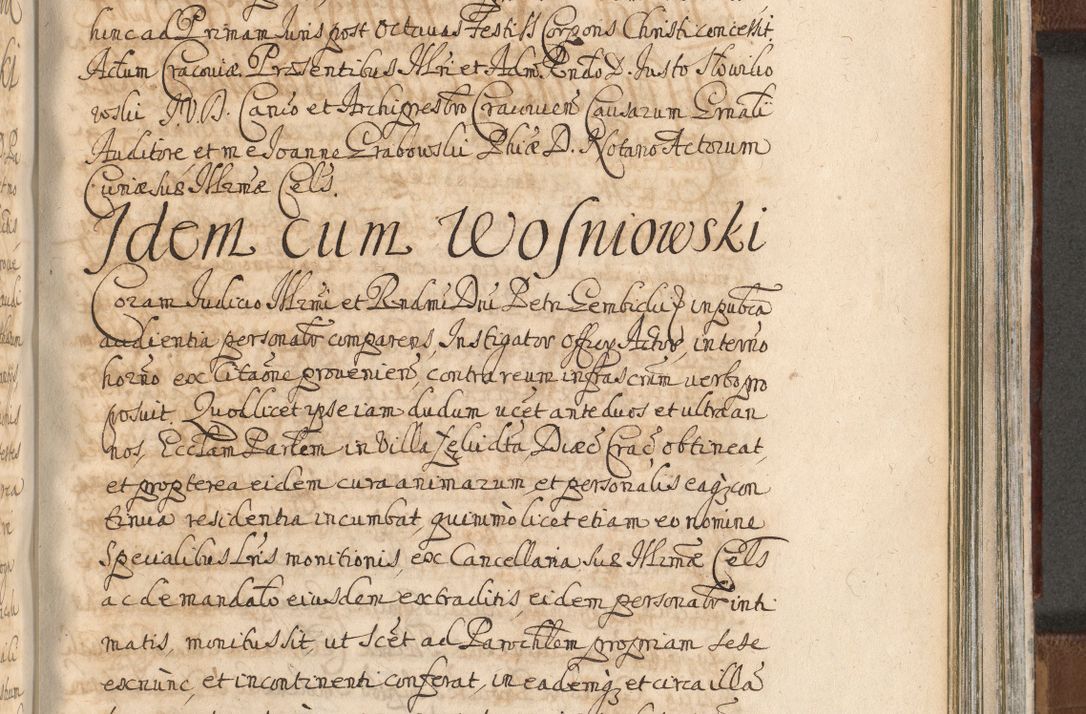 hinc ad Primam Juris post Octauas Festi SS Corporis Christi concessit
Actum Cracouiæ. Præsentibus Illri et Adm. Rndo D. Justo Słowiko
wski J.V.D. Canco et Archipresbro Cracouien Causarum Grnali
Auditore et me Joanne Grabowski Phiæ D. Notario Actorum
Curiæ Suæ Illrmæ Cels.
Idem cum Wosniowski
Coram Judicio Illrmi et Rndmi Dni Petri Gembicki Ep in publica
audientia personalr comparens, Instigator officij Actor, in termno
horno ex Citaone provenien, contra reum infrascrum verbo pro
posuit. Quod licet ipse iam dudum ucet ante duos et ultra an
nos, Ecclam Parlem in Villa dcta, Diæc Crac obtineat,
et propterea eidem cura animarum et personalis eaq con
tinua residentia incumbat, quinimo licet etiam eo nomine
Specialibus Lris monitionis, ex Cancellaria Suæ Illrmæ Cels
ac de mandato eiusdem extraditis, eidem personalr inti
matis, monitus sit, ut scet ad Parochlem propriam sese
ex nunc, et incontinenti conferat, in eademq et circa illa